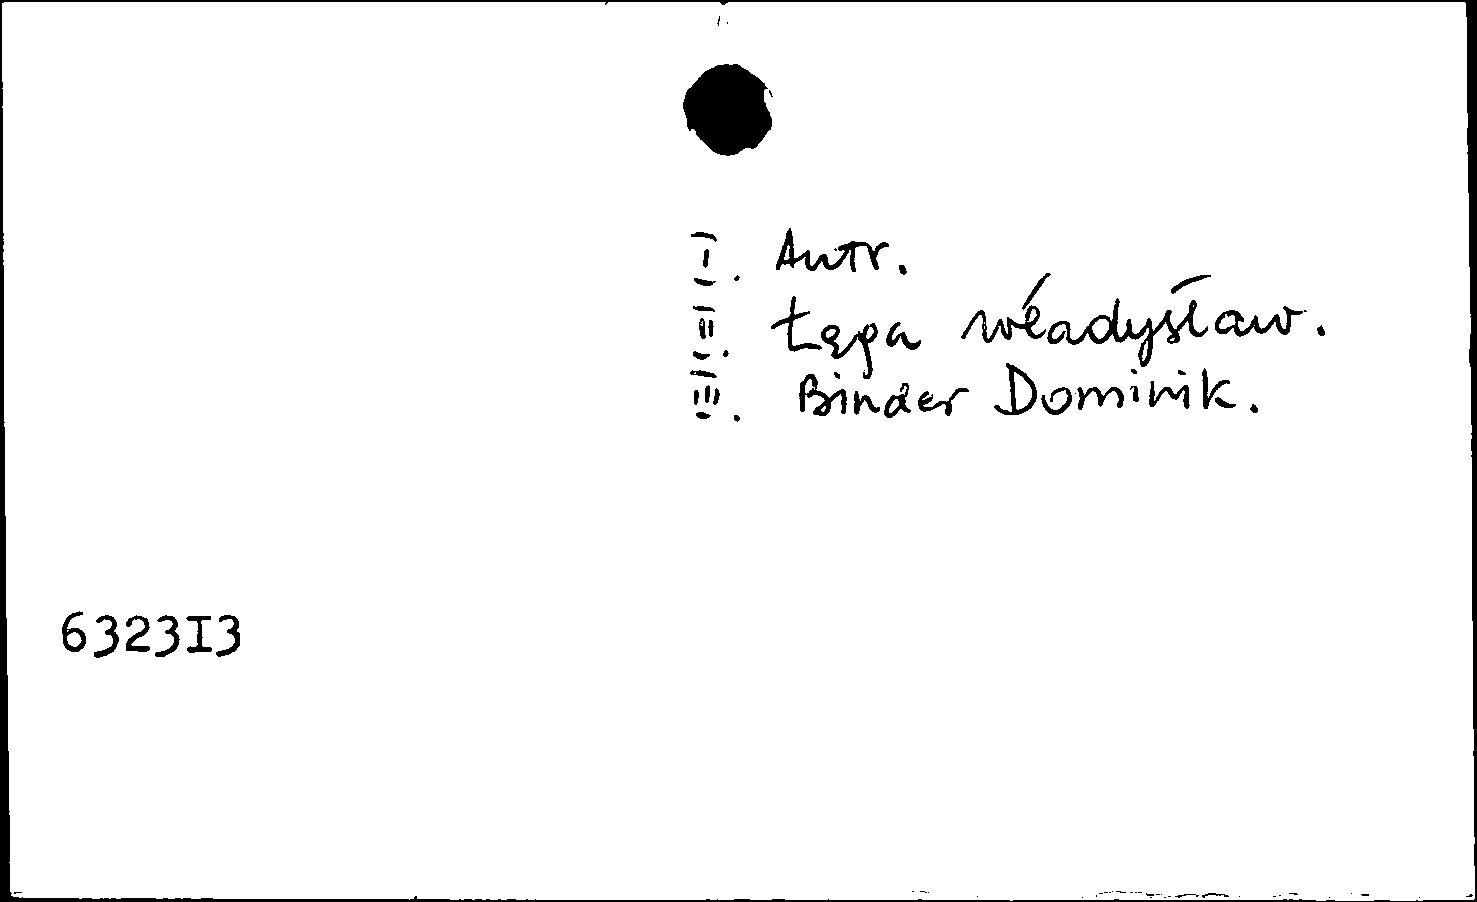 I. Autr.
II. Łęga Władysław.
III. Binder Dominik.
6323I3